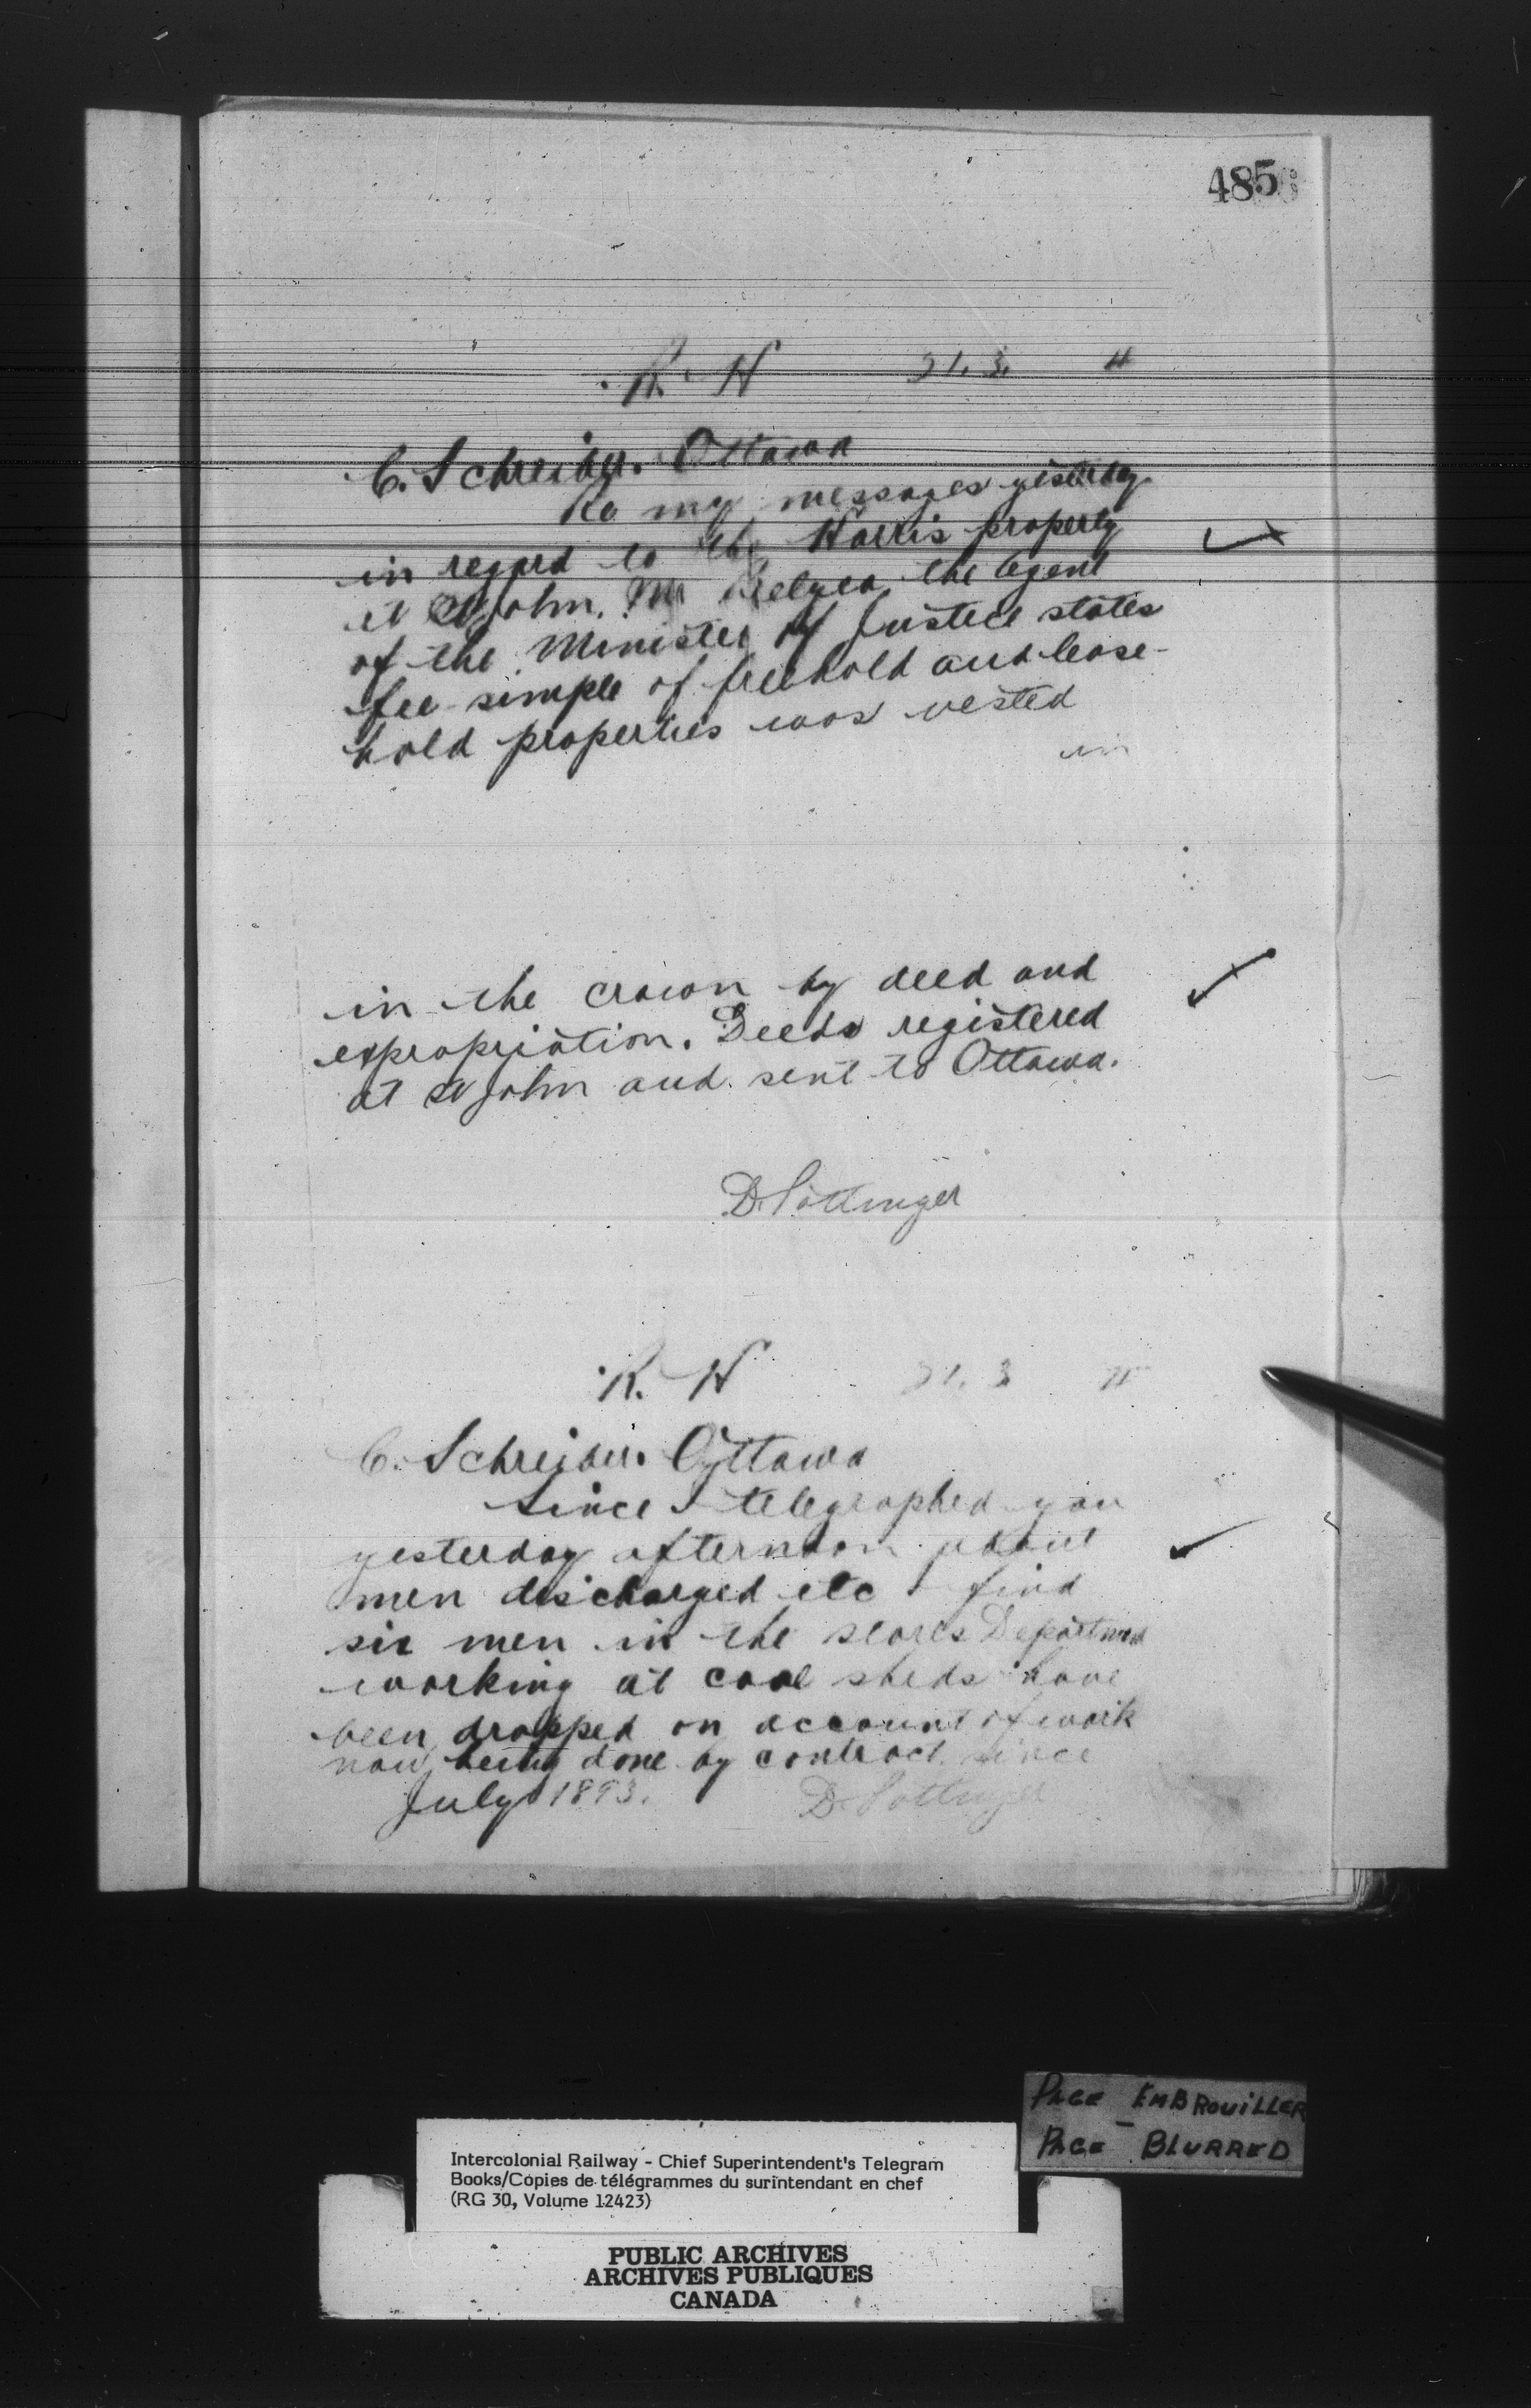 485
R. N 31.3. 4
C. Schreiber. Ottawa
Re my messages yesterday
in regard to the Harris property
at St John. Mr Belyea the Agent
of the Minister of Justice states
fee simple of freehold and lease-
hold properties was vested
in
in the crown by deed and
expropriation. Deeds registered
at St John and sent to Ottawa.
D. Pottinger
R. N 31.3
C. Schreiber. Ottawa
Since I telegraphed you
yesterday afternoon about
men discharged etc I find
six men in the stores Department
working at coal sheds have
been dropped on account of work
now being done by contract since
July 1893.
D. Pottinger
PAGE EMBROUILLER
PAGE BLURRED
Intercolonial Railway - Chief Superintendent's Telegram
Books/Copies de télégrammes du surintendant en chef
(RG 30, Volume 12423)
PUBLIC ARCHIVES
ARCHIVES PUBLIQUES
CANADA